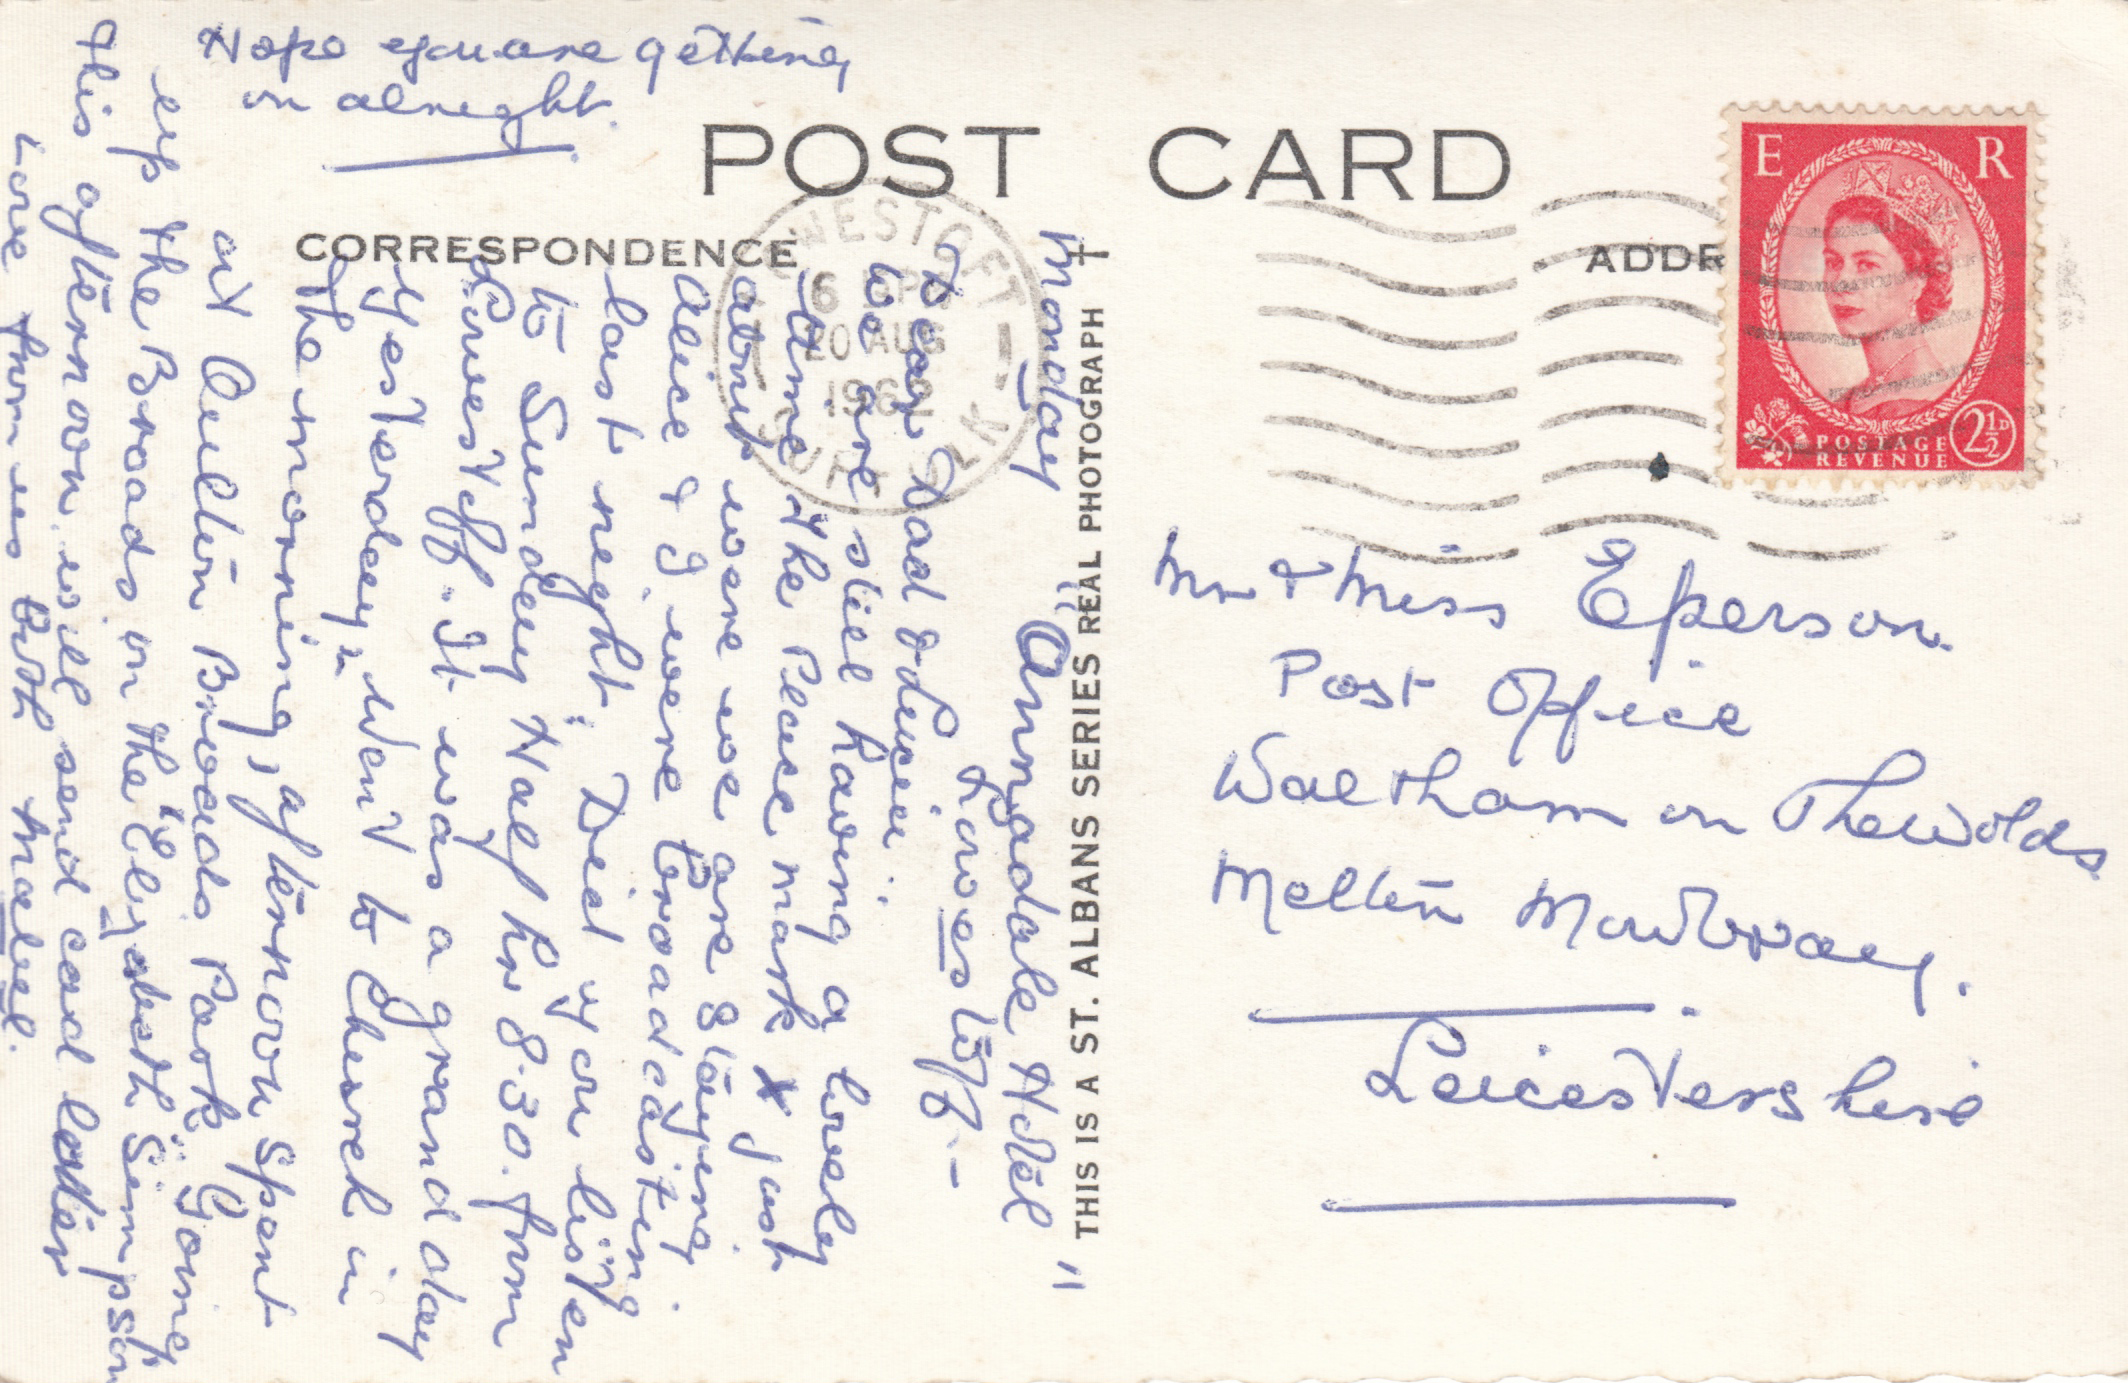 POST CARD
CORRESPONDENCE
ADDR
THIS IS A ST. ALBANS SERIES REAL PHOTOGRAPH
LOWESTOFT
6 PM
20 AUG
1962
SUFFOLK
E R
POSTAGE
REVENUE
2½D
Mr & Miss Eperson.
Post Office
Waltham on The Wolds
Melton Mowbray.
Leicestershire
Monday
"Annadale Hotel"
Lowestoft.-
Dear Dad & Lucie:
we are still having a lovely
time the Place mark X just
about were we are staying
Alice & I were broadcasting
last night, Did you listen
to Sunday Half hr 8-30. from
Lowestoft. It was a grand day
yesterday, went to Church in
the morning, afternoon spent
at Oulton Broads Park Going
up the Broads on the "Elizabeth Simpson"
this afternoon will send card later
Love from us both Mabel.
Hope you are getting
on alright.